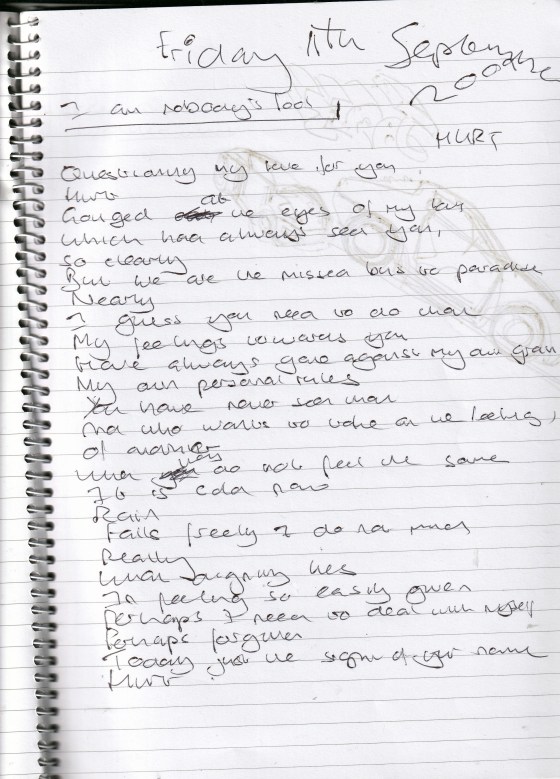 Friday 11th September
2009
I am nobody's Fool
HURT
Questioning my love for you
Hurt
Gouged at the eyes of my
which had always seen you,
so clearly
But we are the missed bus to paradise
Nearly
I guess you need to do that
My feelings towards you
Have always gone against my own grain
My own personal rules
You have never seen that
And who wants to take on the feelings,
of another
When do not feel the same
It is cold now
Rain
Falls freely I do not mind
Really
What dignity lies
In feeling so easily given
Perhaps I need to deal with myself
Perhaps forgiven
Today just the sight of your name
Hurt